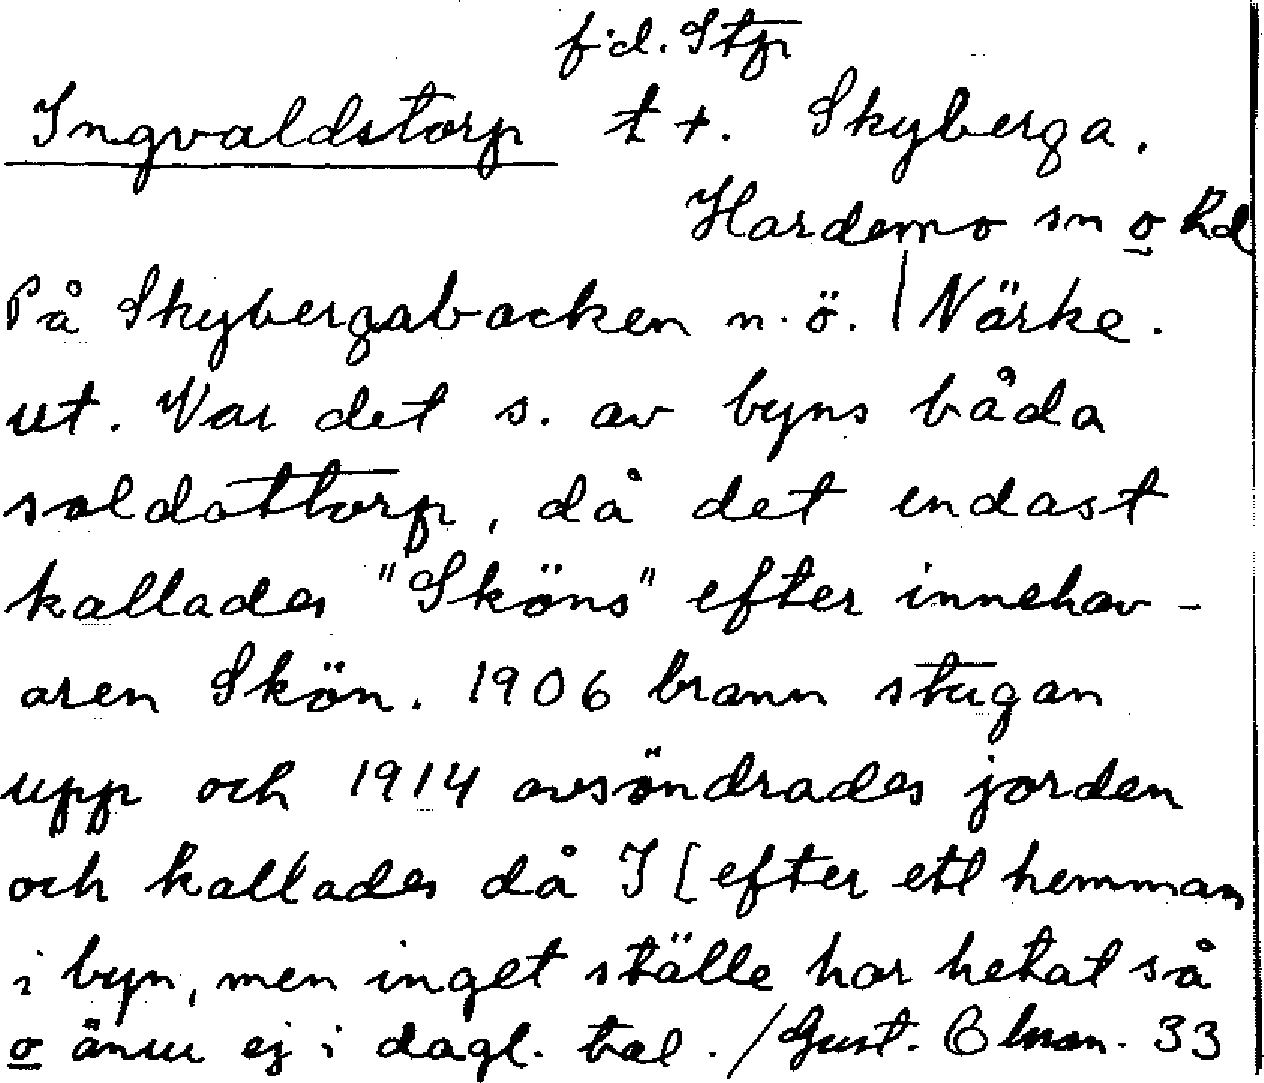 f.d. Stp
Ingvaldstorp t +. Skyberga.
Hardemo sn o hd
På Skybergabacken n.ö. | Närke.
ut. Var det s. av byns båda
soldattorp, då det endast
kallades "Sköns" efter innehav-
aren Skön. 1906 brann stugan
upp och 1914 avsöndrades jorden
och kallades då I [efter ett hemman
i byn, men inget ställe har hetat så
o ännu ej i dagl. tal. / Gust. 33